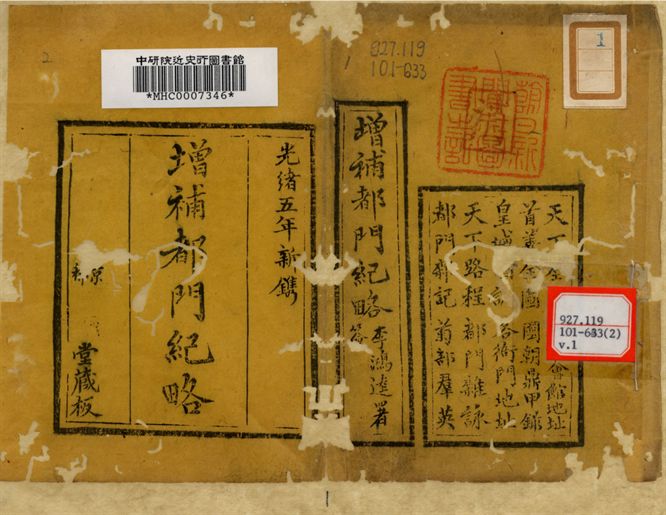 中研院近史所圖書館
*MHC0007346*
2
1
927.119
101-633
1
天
會館地址
首善全圖 國朝鼎甲錄
皇城 各衙門地址
天下路程 都門雜詠
都門雜記 菊部羣英
927.119
101-633(2)
v.1
增補都門紀略
李鴻逵署
光緒五年新鐫
增補都門紀略
堂藏板